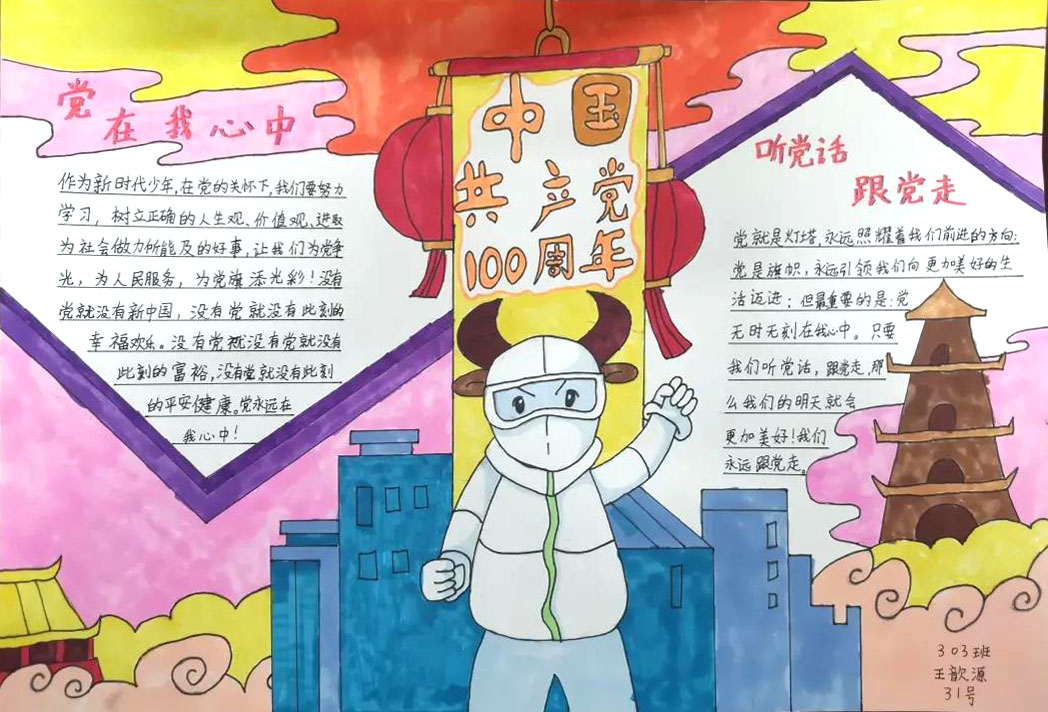 党在我心中
作为新时代少年,在党的关怀下,我们要努力
学习，树立正确的人生观、价值观、进取
为社会做力所能及的好事，让我们为党争
光，为人民服务，为党旗添光彩！没有
党就没有新中国，没有党就没有此刻的
幸福欢乐。没有党就没有党就没有
此刻的富裕,没有党就没有此刻
的平安健康。党永远在
我心中！
中国
共产党
100周年
听党话
跟党走
党就是灯塔,永远照耀着我们前进的方向;
党是旗帜，永远引领我们向更加美好的生
活迈进；但最重要的是:党
无时无刻在我心中。只要
我们听党话，跟党走,那
么我们的明天就会
更加美好!我们
永远跟党走。
303班
王歆源
31号